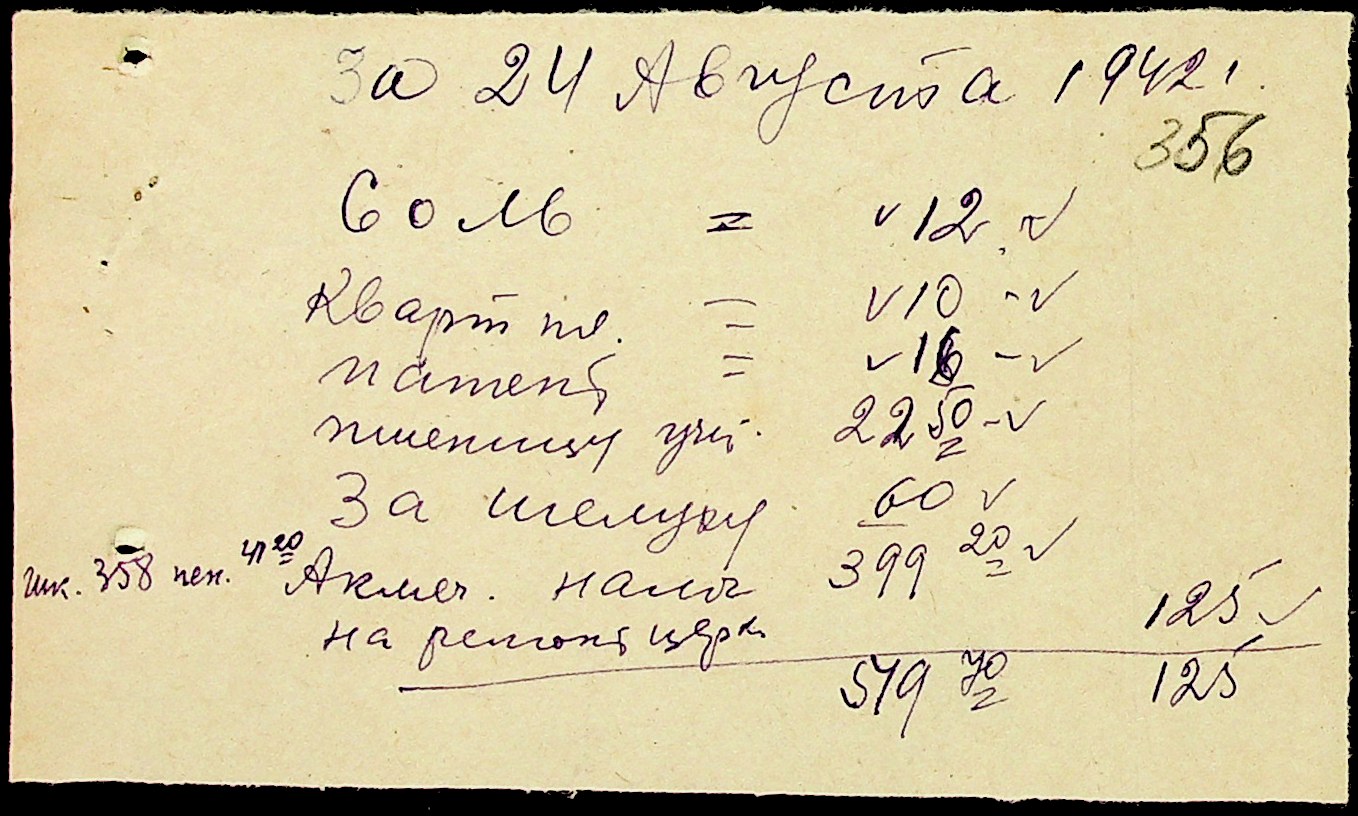 За 24 Августа 1942 г.
356
Соль = 12 -
Кварт пл. = 10 -
патент = 16 -
пшеницу 22 50
За шелуху 60
шт. 358 пен. 41 20 налог 399 20
на ремонт церк. 125
519 70 125